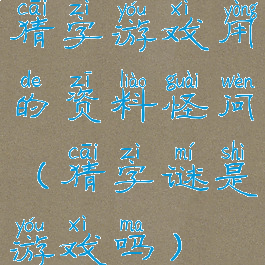 cāi zì yóu xì yòng
猜字游戏用
de zī liào guài wèn
的资料怪问
cāi zì mí shì
（猜字谜是
yóu xì ma
游戏吗）